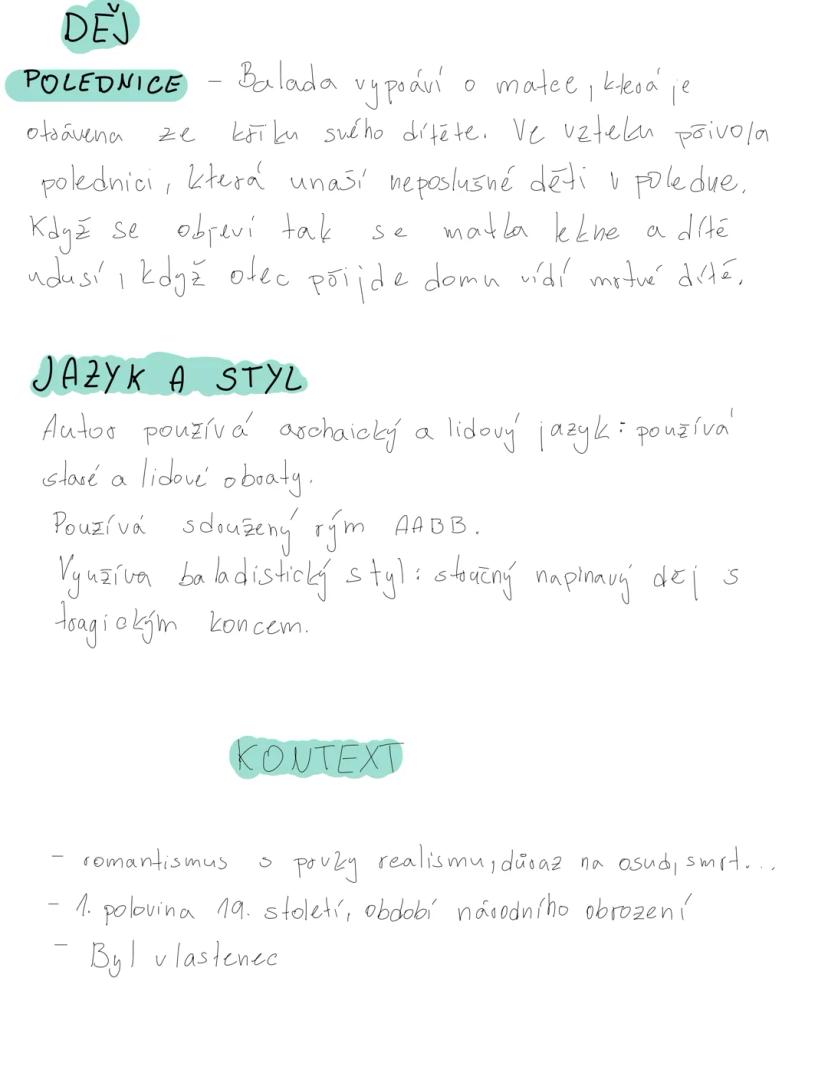 DĚJ
POLEDNICE - Balada vypráví o matce, která je
otrávena ze křiku svého dítěte. Ve vzteku přivola
polednici, která unaší neposlušné děti v poledne.
Když se objeví tak se matka lekne a dítě
udusí, když otec přijde domu vidí mrtvé dítě.
JAZYK A STYL
Autor používá archaický a lidový jazyk: používá
staré a lidové obraty.
Používá sdružený rým AABB.
Využíva baladistický styl: stručný napínavý děj s
tragickým koncem.
KONTEXT
- romantismus s prvky realismu, důraz na osud, smrt...
- 1. polovina 19. století, období národního obrození
- Byl vlastenec